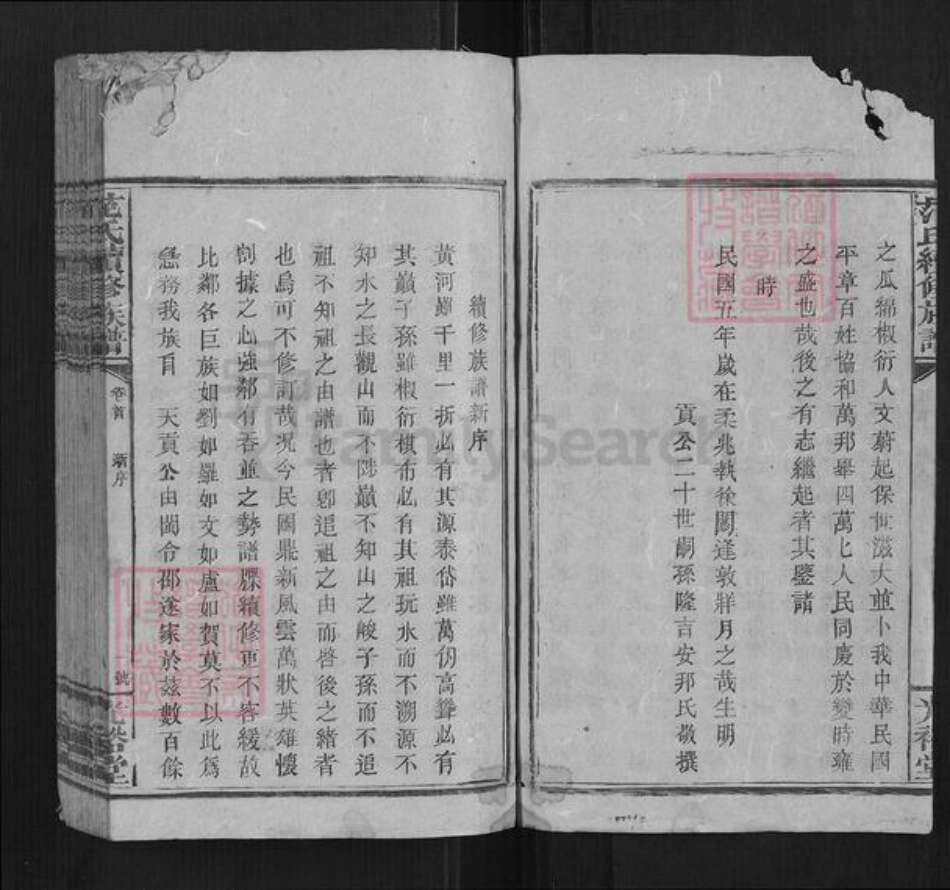 之瓜綿椒衍人文蔚起保世滋大並卜我中華民國
平章百姓協和萬邦舉四萬七人民同慶於變時雍
之盛也哉後之有志繼起者其鑒諸
時
民國五年歲在柔兆執徐閼逢敦牂月之哉生明
貢公二十世嗣孫隆吉安邦氏敬撰
范氏續修族譜
光裕堂
續修族譜新序
黃河雖千里一折必有其源泰岱雖萬仞高聳必有
其巔子孫雖椒衍棋布必有其祖玩水而不溯源不
知水之長觀山而不陟巔不知山之峻子孫而不追
祖不知祖之由譜也者卽追祖之由而啓後之緒者
也烏可不修訂哉況今民國鼎新風雲萬狀英雄懷
割據之心強鄰有吞並之勢譜牒續修更不容緩故
比鄰各巨族如劉如羅如文如盧如賀莫不以此爲
急務我族自 天貢公由閩令邵遂家於茲數百餘
范氏續修族譜
卷首 新序
號
光裕堂
FamilySearch